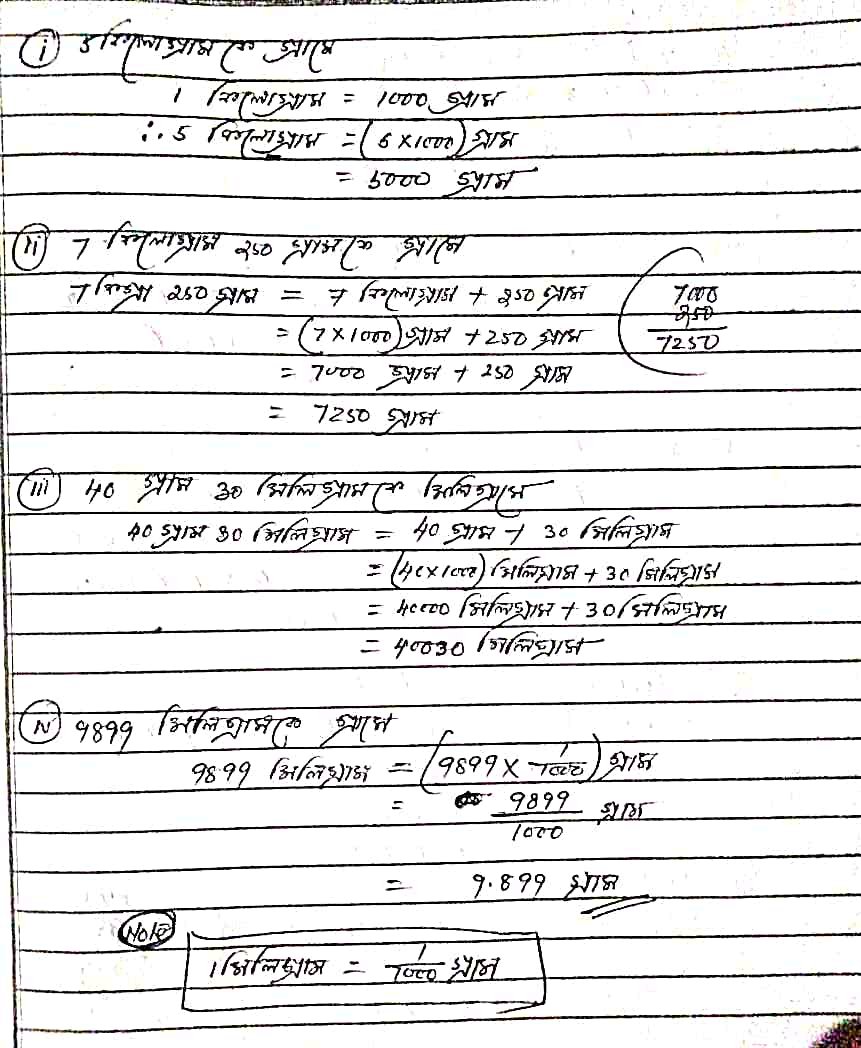 (i) 5 কিলোগ্রামকে গ্রামে
1 কিলোগ্রাম = 1000 গ্রাম
∴ 5 কিলোগ্রাম = (5 × 1000) গ্রাম
= 5000 গ্রাম
(ii) 7 কিলোগ্রাম 250 গ্রামকে গ্রামে
7 কিগ্রা 250 গ্রাম = 7 কিলোগ্রাম + 250 গ্রাম
= (7 × 1000) গ্রাম + 250 গ্রাম
= 7000 গ্রাম + 250 গ্রাম
= 7250 গ্রাম
7000
250
7250
(iii) 40 গ্রাম 30 মিলিগ্রামকে মিলিগ্রামে
40 গ্রাম 30 মিলিগ্রাম = 40 গ্রাম + 30 মিলিগ্রাম
= (40 × 1000) মিলিগ্রাম + 30 মিলিগ্রাম
= 40000 মিলিগ্রাম + 30 মিলিগ্রাম
= 40030 মিলিগ্রাম
(iv) 9899 মিলিগ্রামকে গ্রামে
9899 মিলিগ্রাম = (9899 × 1/1000) গ্রাম
= 9899/1000 গ্রাম
= 9.899 গ্রাম
Note
1 মিলিগ্রাম = 1/1000 গ্রাম